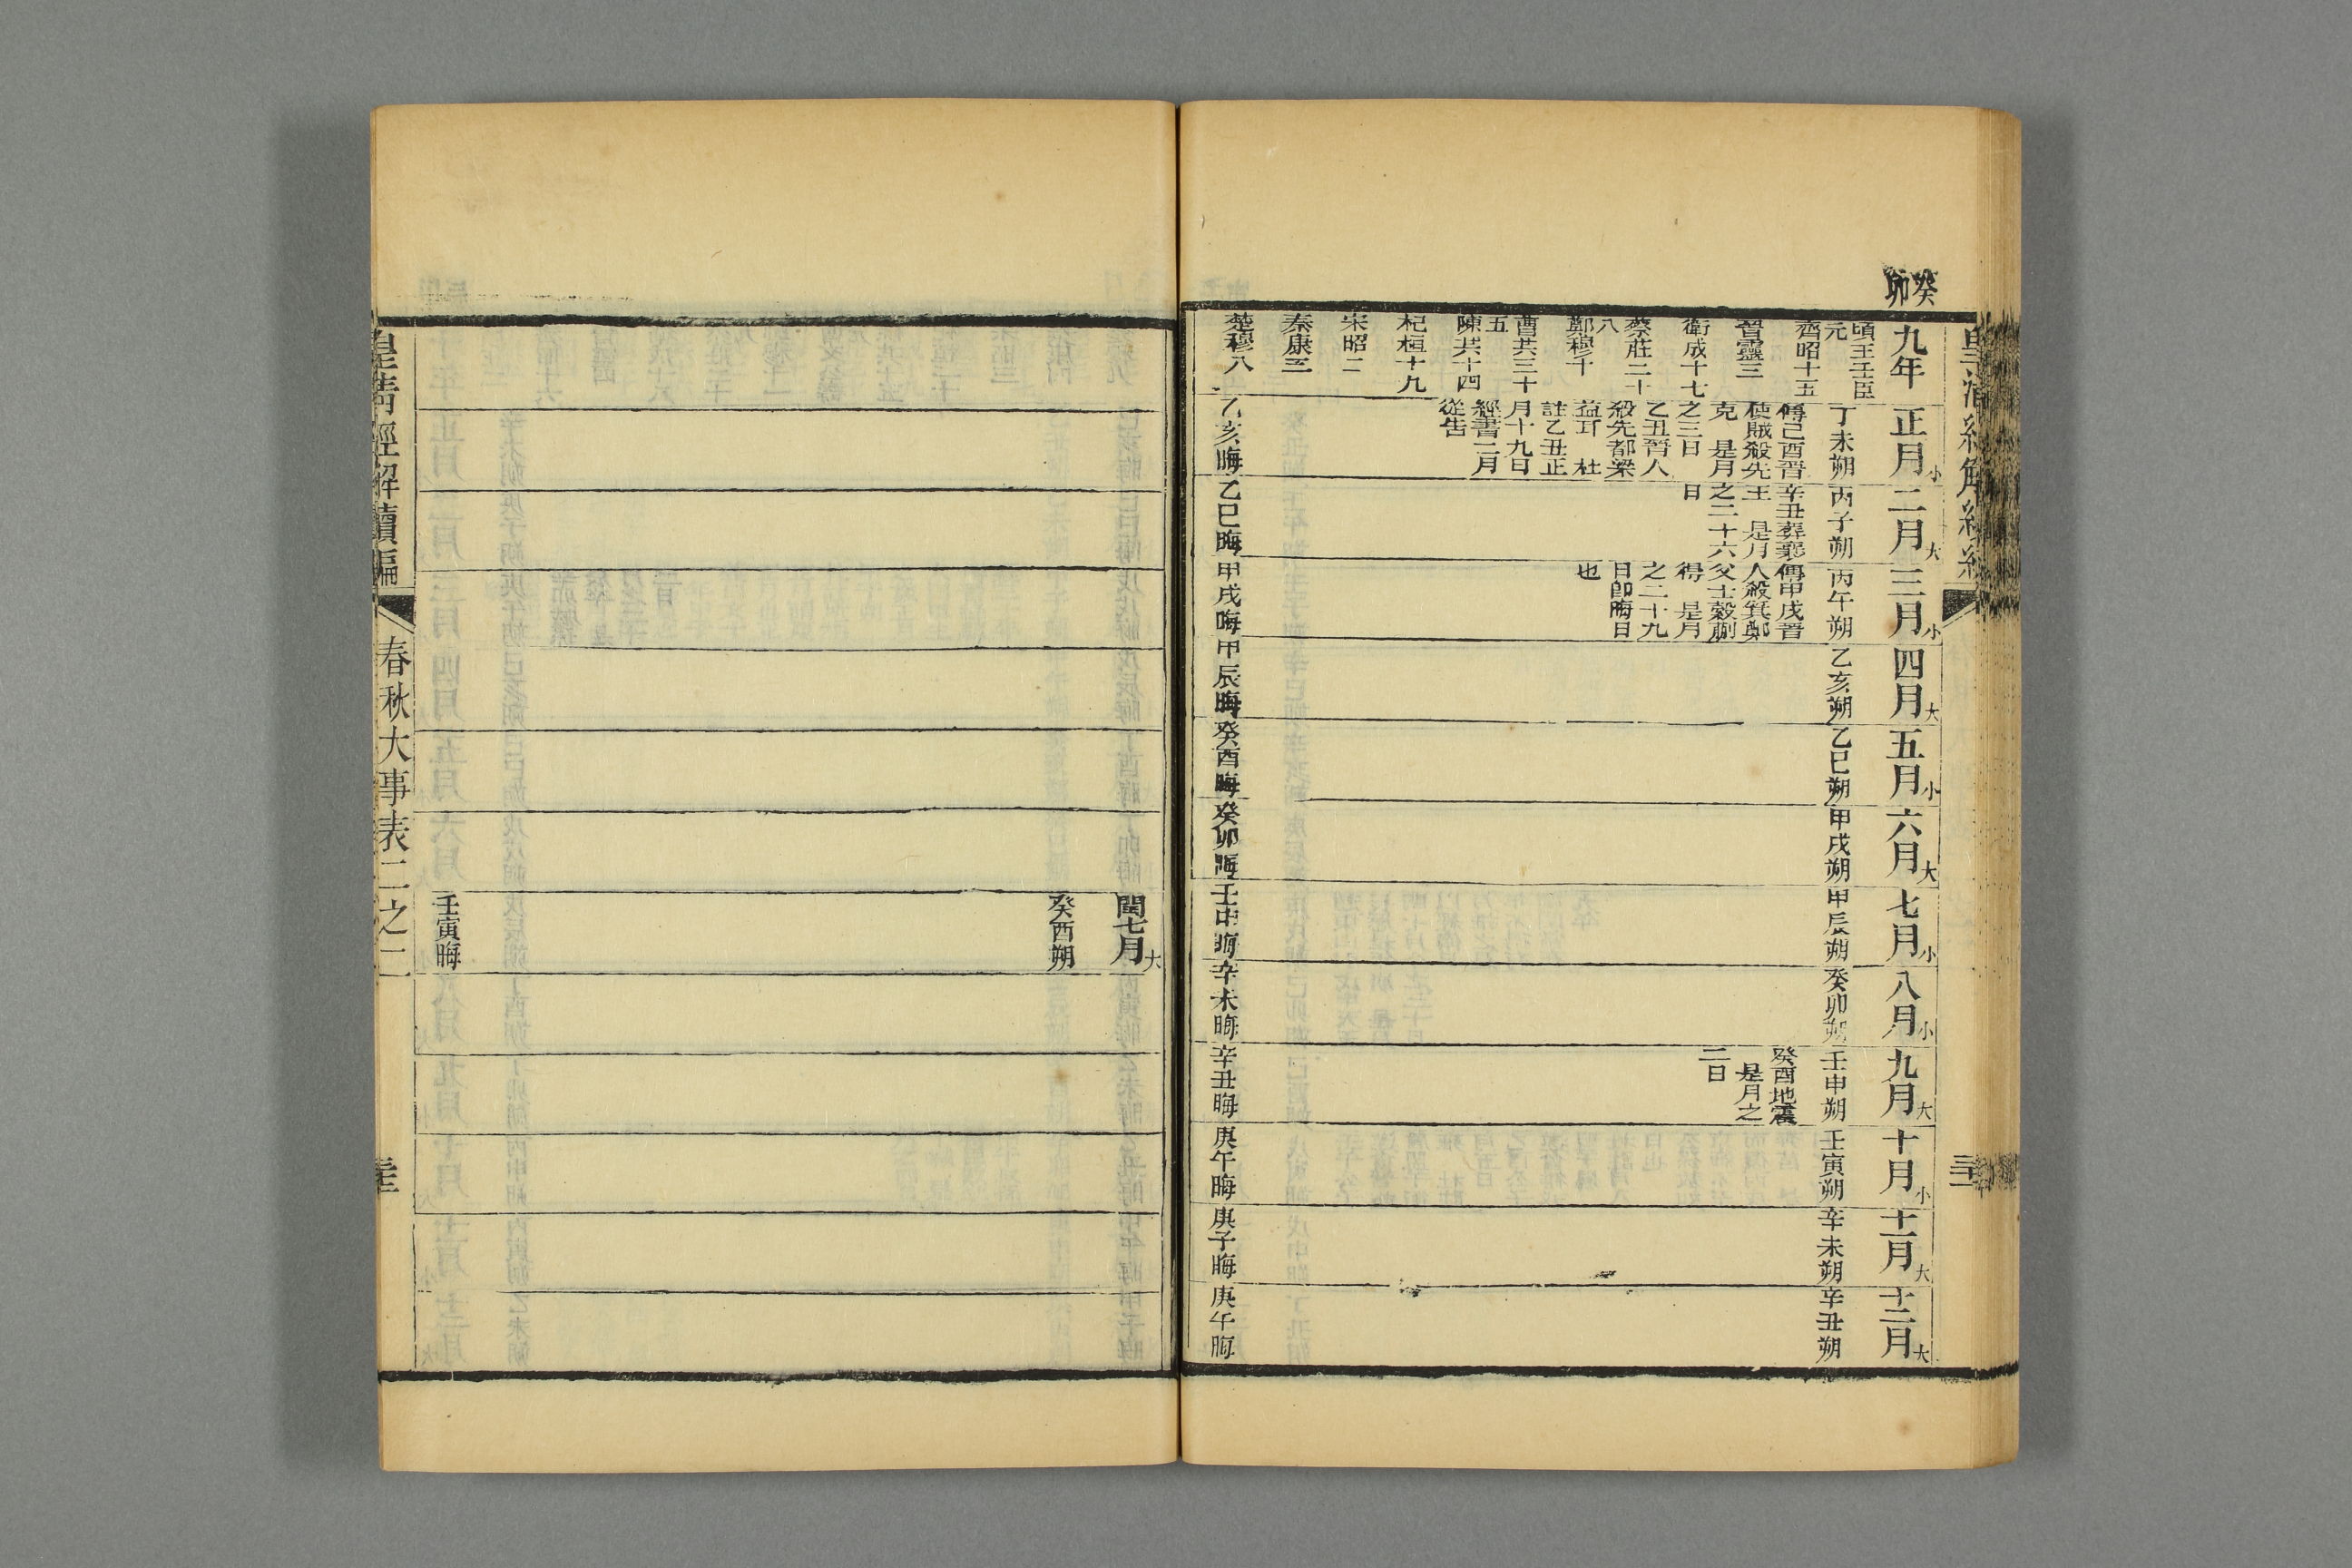 癸卯
九年
頃王壬臣
元
齊昭十五
晉靈三
衛成十七
蔡莊二十
八
鄭穆十
曹共三十
五
陳共十四
杞桓十九
宋昭二
秦康三
楚穆八
正月小
丁未朔
傳己酉晉
使賊殺先
克　是月
之三日
乙丑晉人
殺先都梁
益耳　杜
註乙丑正
月十九日
經書二月
從告
乙亥晦
二月大
丙子朔
辛丑葬襄
王　是月
之二十六
日
乙巳晦
三月小
丙午朔
傳甲戌晉
人殺箕鄭
父士縠蒯
得　是月
之二十九
日卽晦日
也
甲戌晦
四月大
乙亥朔
甲辰晦
五月小
乙巳朔
癸酉晦
六月大
甲戌朔
癸卯晦
七月小
甲辰朔
壬申晦
八月小
癸卯朔
辛未晦
九月大
壬申朔
癸酉地震
是月之
二日
辛丑晦
十月小
壬寅朔
庚午晦
十一月大
辛未朔
庚子晦
十二月大
辛丑朔
庚午晦
閏七月大
癸酉朔
壬寅晦
皇清經解續編
春秋大事表二之二